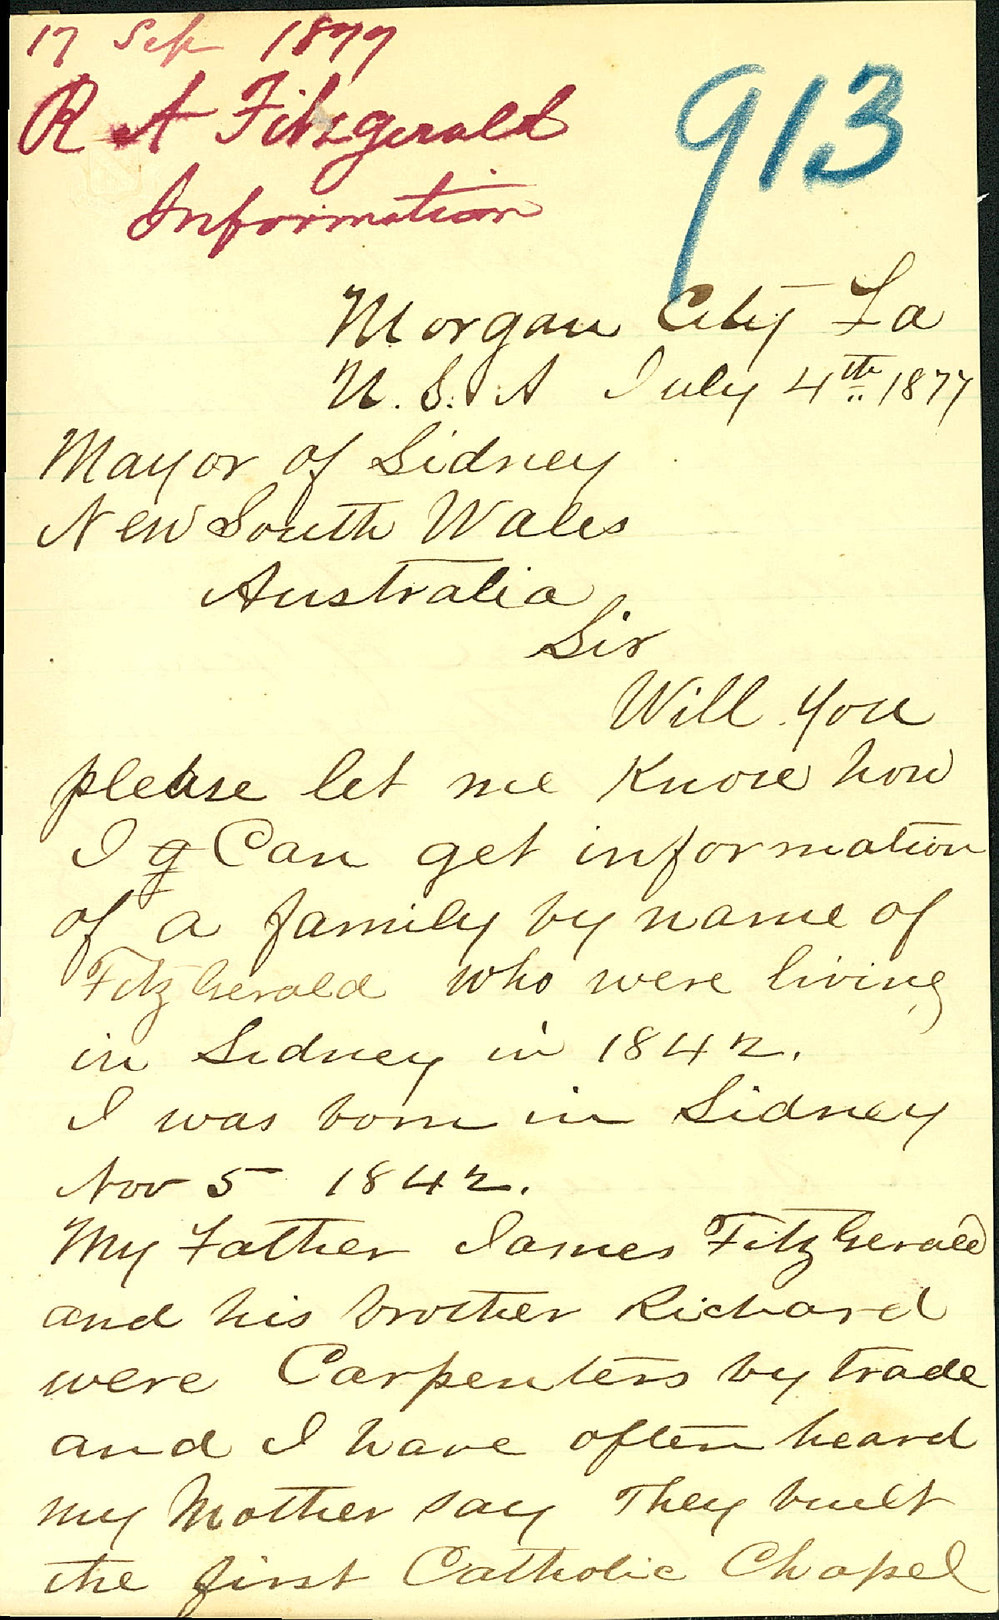 17 Sep 1877
R A Fitzgerald
Information
913
Morgan City La
U. S. A July 4th 1877
Mayor of Sidney
New South Wales
Australia
Sir
Will you
please let me Know how
I g Can get information
of a family by name of
FitzGerald who were living
in Sidney in 1842.
I was born in Sidney
Nov 5 1842.
My Father James FitzGerald
and his brother Richard
were Carpenters by trade
and I have often heard
my Mother say They built
the first Catholic Chapel